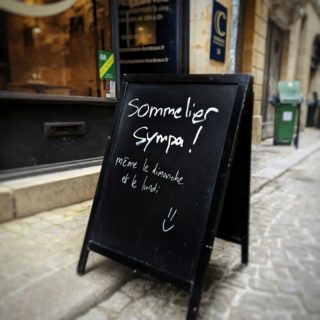 Sommelier
sympa !
même le dimanche
et le lundi